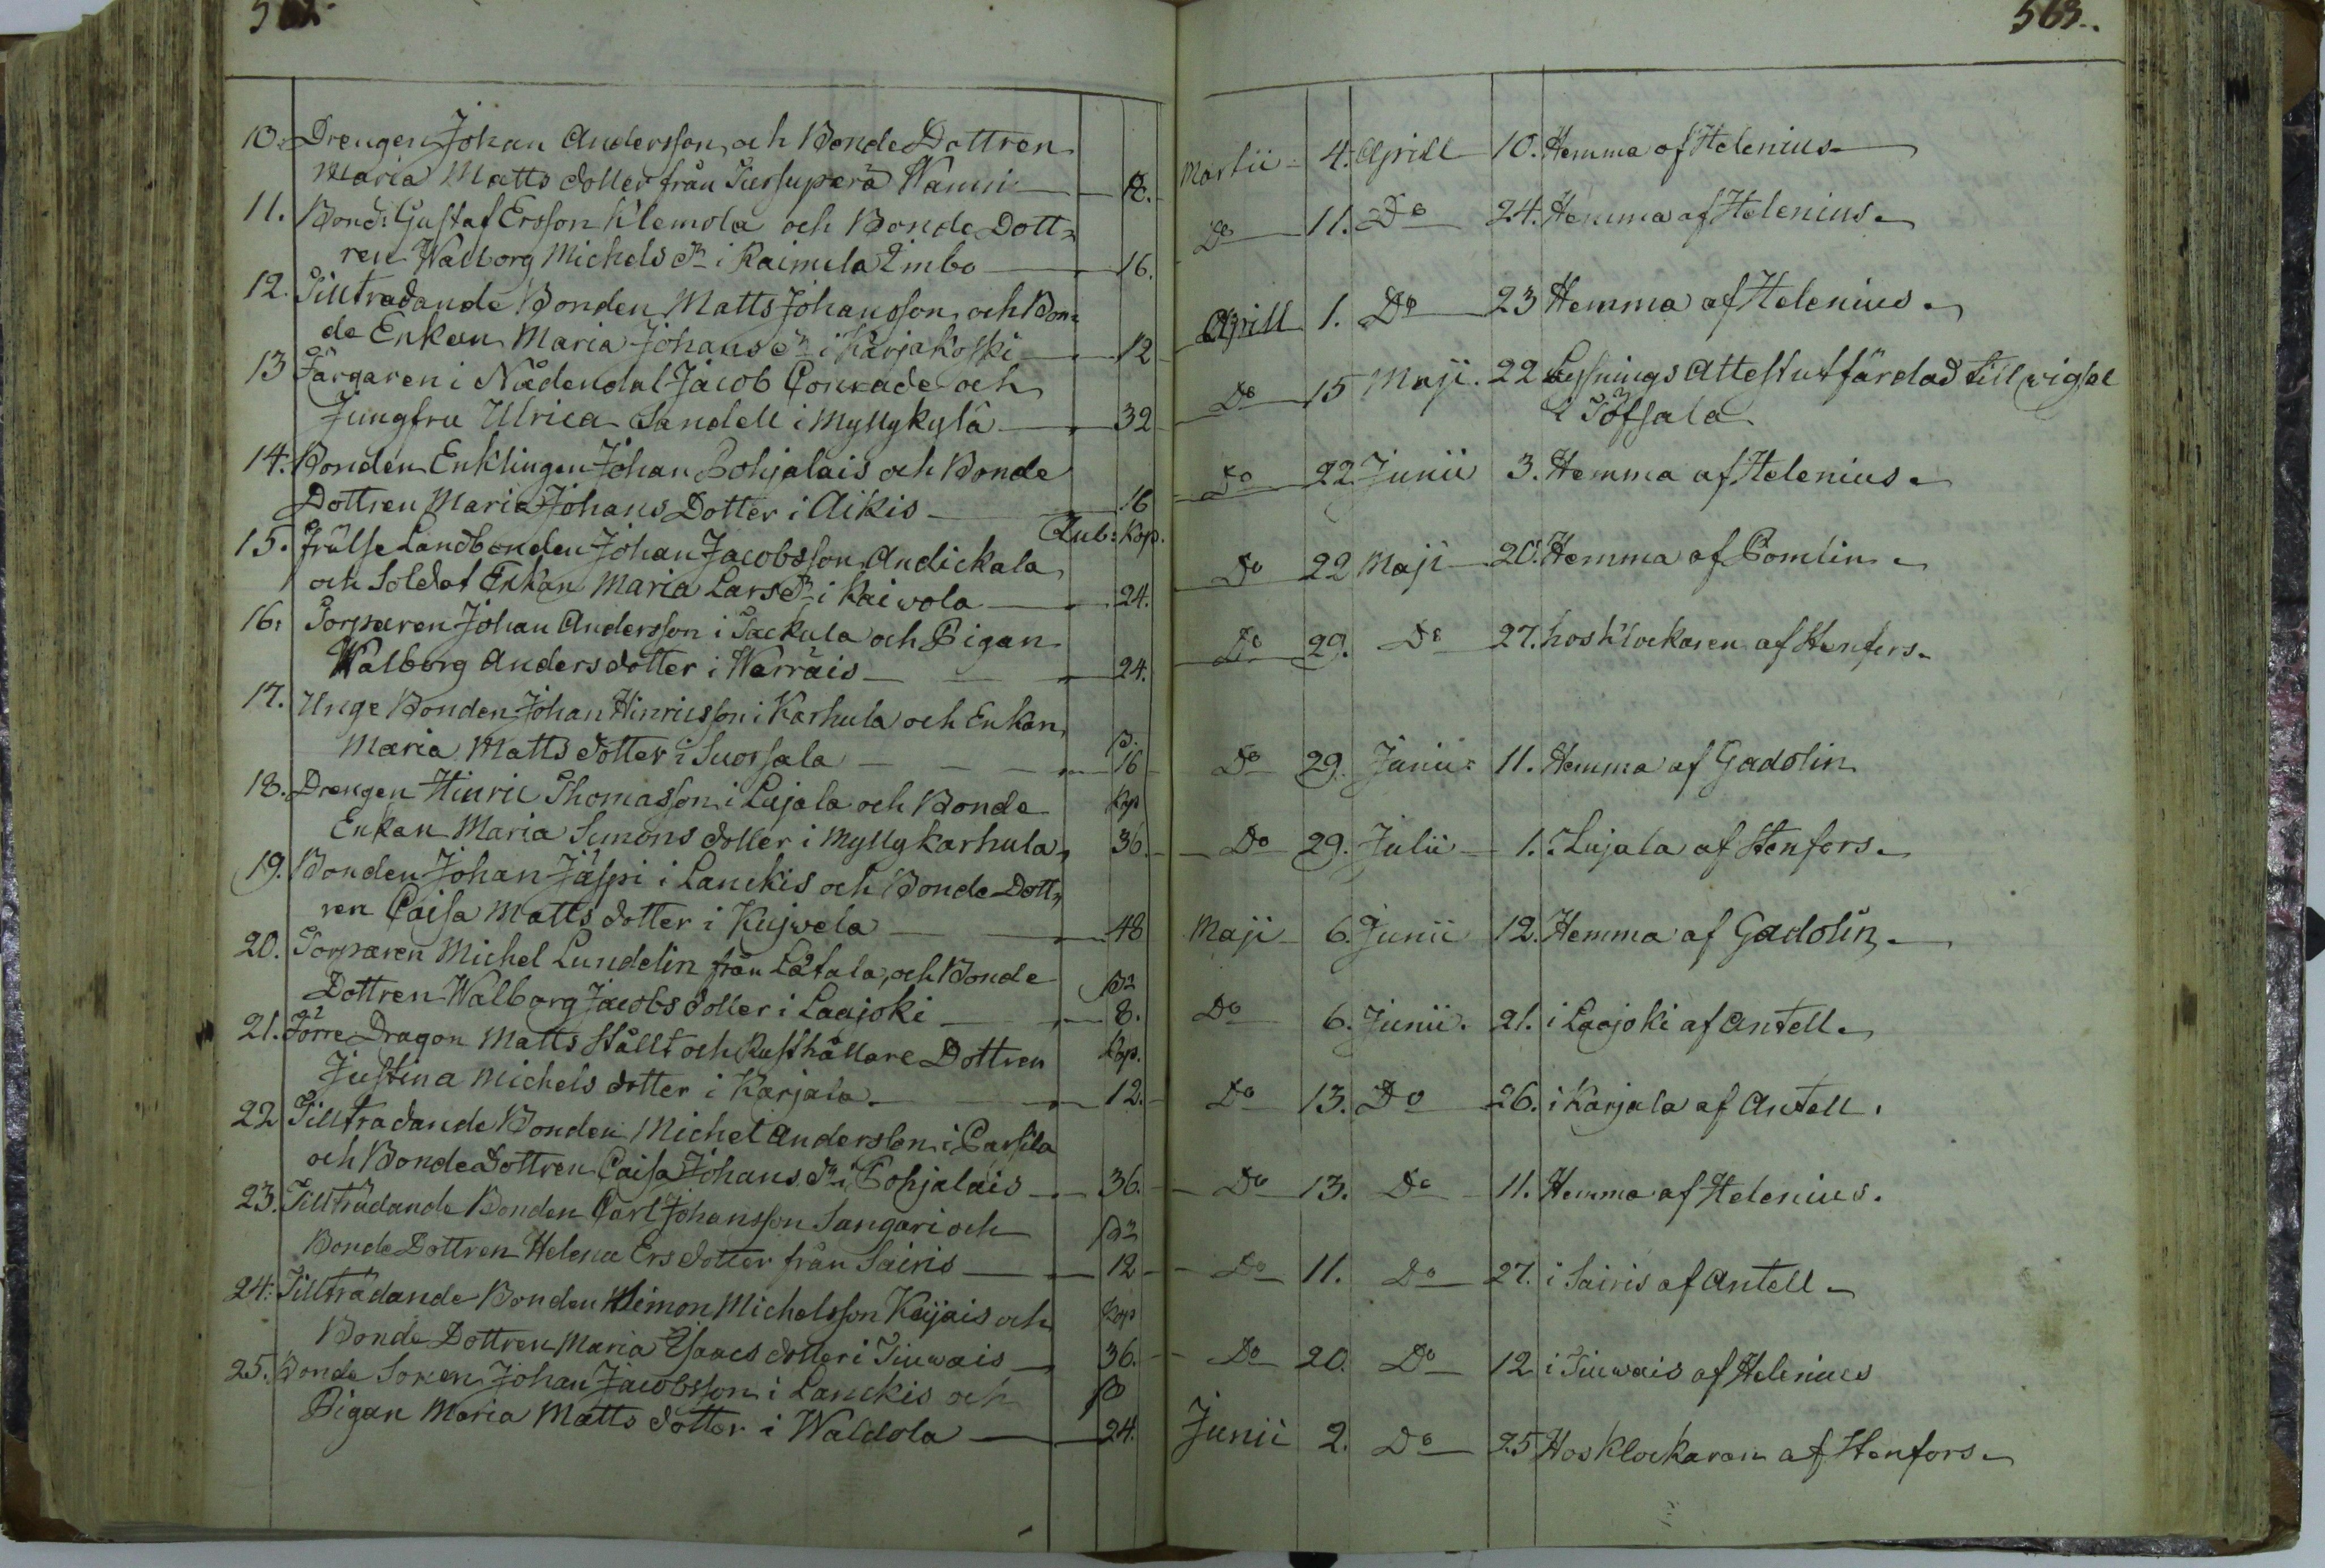 563.
10. Drengen Johan Andersson och Bonde Dottren
Maria Matts dotter från Tursuperä Wanni
11. Bond: Gustaf Ersson Klemola och Bonde Dott=
ren Walborg Michels dr i Raimela Simbo 16.
12. Tillträdande Bonden Matts Johansson och Bon=
de Enkan Maria Johans dr i Karjakoski 12
13 Färgaren i Nådendal Jacob Conrade och
Jungfru Ulrica Sandell i Myllykylä 32
14. Bonden Enklingen Johan Pohjalais och Bonde
Dottren Maria Johans Dotter i Aikis 16
Rub: Kop.
15. Frälse Landbonden Johan Jacobsson Andickala
och Soldat Enkan Maria Lars dr i Kaivola 24.
16: Torparen Johan Andersson i Tackula och Pigan
Walborg Anders dotter i Warräis 24.
17. Unge Bonden Johan Hinricsson i Karhula och Enkan
Maria Matts dotter i Suorsala 16
18. Drengen Hinric Thomasson i Lujala och Bonde Kop
Enkan Maria Simons dotter i Myllykarhula 36.
19. Bonden Johan Jäspi i Lanckis och Bonde Dott=
ren Caisa Matts dotter i Kujwela 48
20. Torparen Michel Lundelin från Låtala, och Bonde
Dottren Walborg Jacobs dotter i Laajoki 8.
21. Förre Dragon Matts Ställt och Rusthållare Dottren Kop.
Justina Michels dotter i Karjala 12.
22 Tillträdande Bonden Michel Andersson i Parsila
och Bonde dottren Caisa Johans dr i Pohjalais 36.
23. Tillträdande Bonden Carl Johansson Sangari och
Bonde Dottren Helena Ers dotter från Sairis 12
24: Tillträdande Bonden Simon Michelsson Keijais och Kop
Bonde Dottren Maria Isaacs dotter i Tiuwais 36.
25. Bonde Sonen Johan Jacobsson i Lanckis och
Pigan Maria Matts dotter i Waldola 24.
Martii 4. Aprill 10. Hemma af Helenius
Do 11. Do 24. Hemma af Helenius
Aprill 1. Do 23 Hemma af Helenius
Do 15 Maji. 22 Lysnings Attest utfärdad till wigsel
i Töfsala
Do 22 Junii 3. Hemma af Helenius
Do 22 Maji 20. Hemma af Pomlin
Do 29. Do 27. hos Klockaren af Stenfors
Do 29. Junii: 11. Hemma af Gadolin
Do 29. Julii 1. i Lujala af Stenfors
Maji 6. Junii 12. Hemma af Gadolin
Do 6. Junii. 21. i Laajoki af Antell
Do 13. Do 26. i Karjala af Antell.
Do 13. Do 11. Hemma af Helenius.
Do 11. Do 27. i Sairis af Antell
Do 20. Do 12 i Tiuwais af Helenius
Junii 2. Do 25 Hos Klockaren af Stenfors